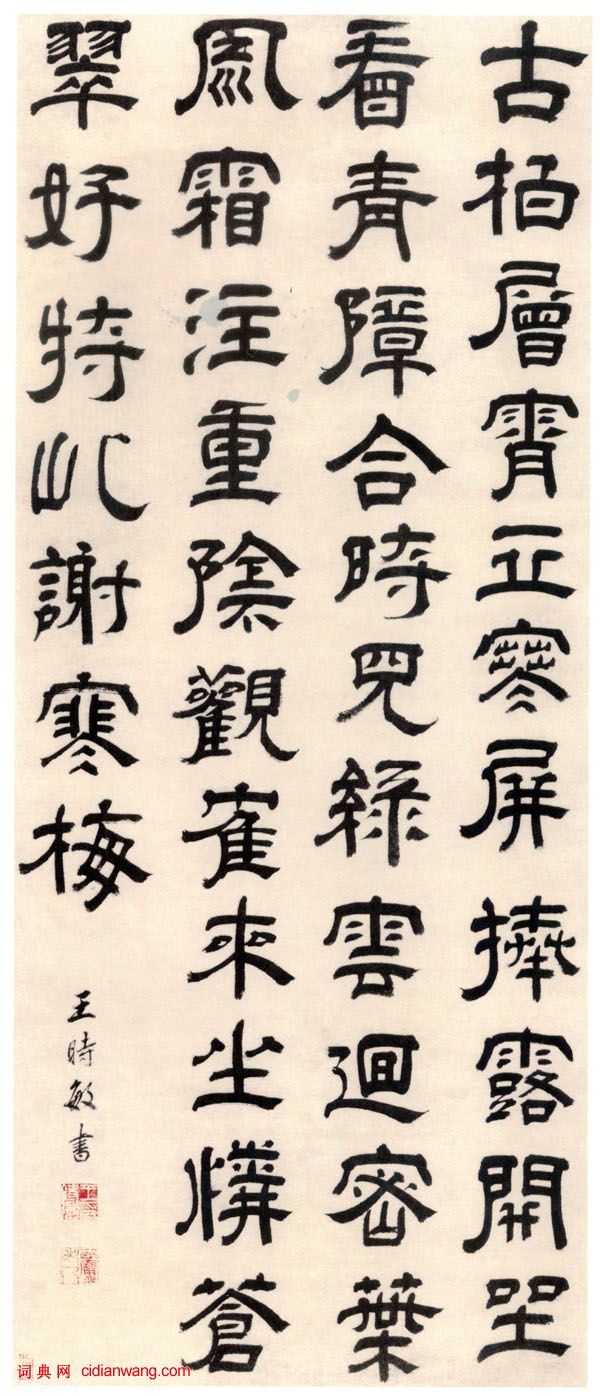 古栢層霄立寒屏捧露開坐
看青障合時見綠雲迴密葉
風霜注重陰觀雀來坐憐蒼
翠好特此謝寒梅
王時敏書
词典网 cidianwang.com